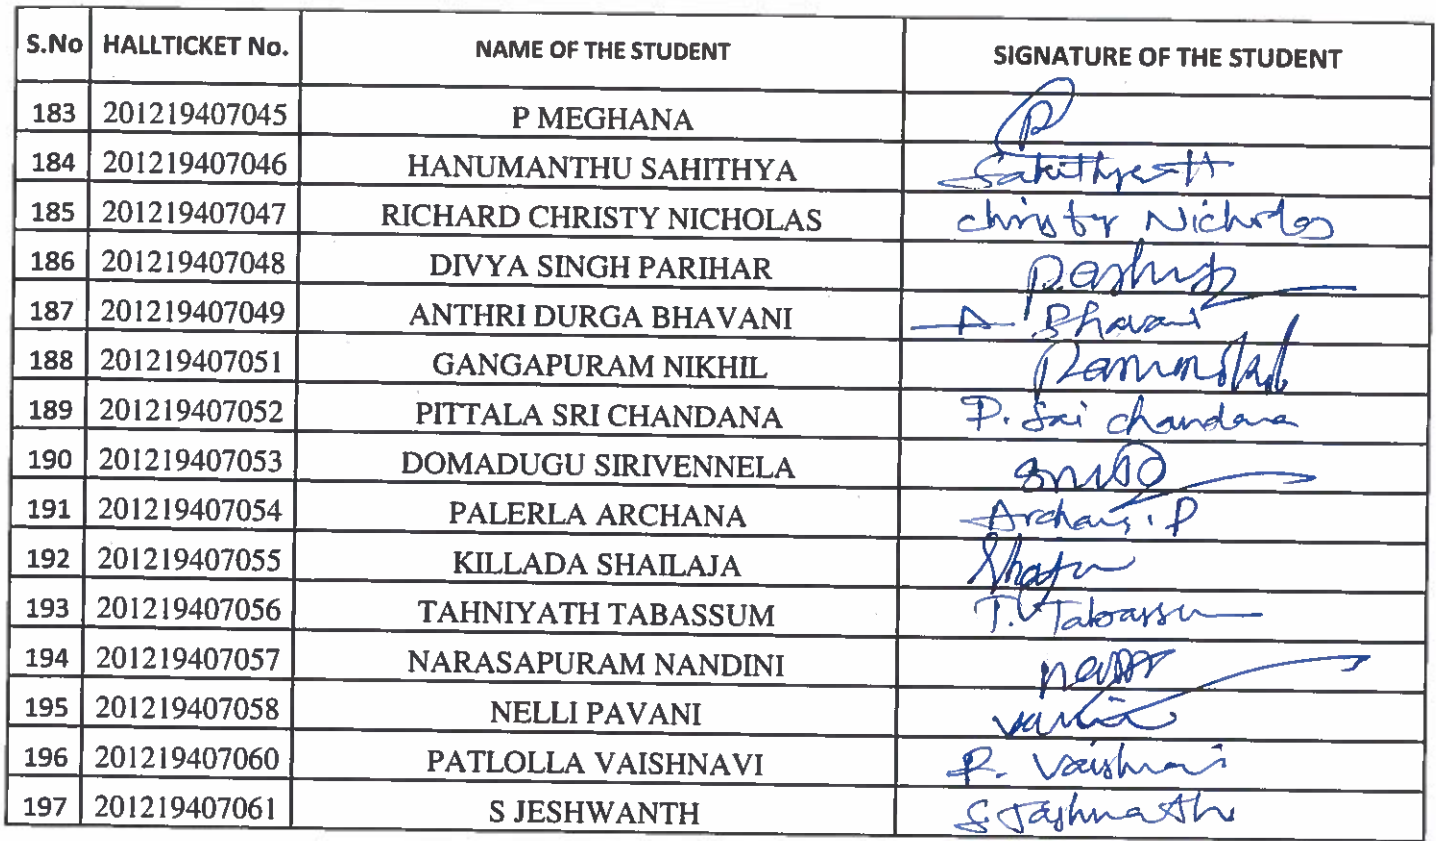 S.No HALLTICKET No. NAME OF THE STUDENT SIGNATURE OF THE STUDENT
183 201219407045 P MEGHANA
184 201219407046 HANUMANTHU SAHITHYA
185 201219407047 RICHARD CHRISTY NICHOLAS christy Nicholas
186 201219407048 DIVYA SINGH PARIHAR
187 201219407049 ANTHRI DURGA BHAVANI A Bhavani
188 201219407051 GANGAPURAM NIKHIL
189 201219407052 PITTALA SRI CHANDANA P. Sai chandana
190 201219407053 DOMADUGU SIRIVENNELA
191 201219407054 PALERLA ARCHANA Archana.P
192 201219407055 KILLADA SHAILAJA
193 201219407056 TAHNIYATH TABASSUM T. Tabassu
194 201219407057 NARASAPURAM NANDINI
195 201219407058 NELLI PAVANI
196 201219407060 PATLOLLA VAISHNAVI P. Vaishnavi
197 201219407061 S JESHWANTH